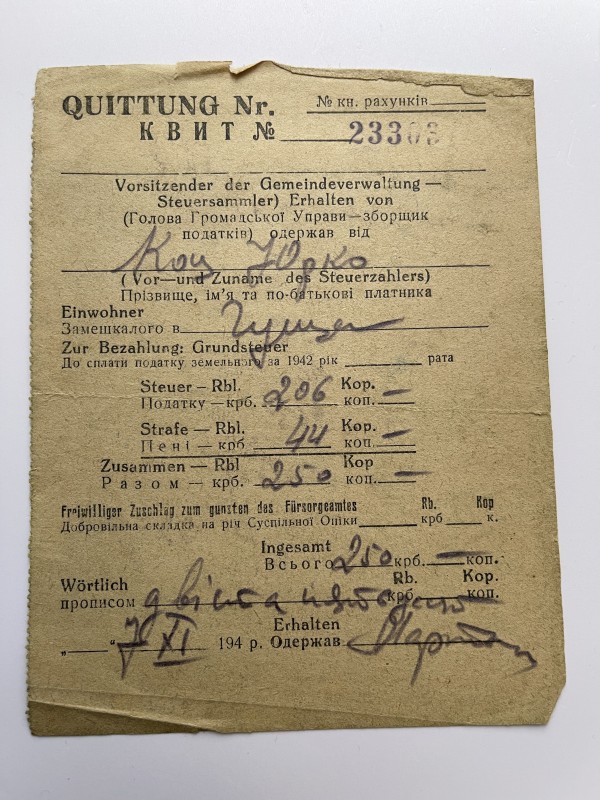 QUITTUNG Nr. № кн. рахунків
КВИТ № 23303
Vorsitzender der Gemeindeverwaltung—
Steuersammler) Erhalten von
(Голова Громадської Управи—зборщик
податків) одержав від
Коц Юдко
(Vor—und Zuname des Steuerzahlers)
Прізвище, ім’я та по-батькові платника
Einwohner
Замешкалого в
Zur Bezahlung: Grundsteuer
До сплати податку земельного за 1942 рік рата
Steuer — Rbl. Kop.
Податку—крб. 206 коп. —
Strafe — Rbl. Kop.
Пені — крб 44 коп —
Zusammen — Rbl Kop
Разом — крб. 250 коп. —
Freiwilliger Zuschlag zum gunsten des Fürsorgeamtes Rb. Kop
Добровільна складка на річ Суспільної Опіки крб к.
Ingesamt
Всього 250 крб. — коп.
Wörtlich Rb. Kop.
прописом двіста пятдесят крб. коп.
Erhalten
„ “ 7 XI 194 р. Одержав